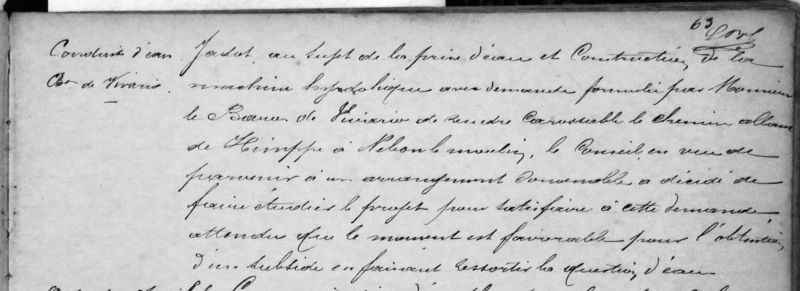 63
Conduite d'eau
Bon de Vivario.
Jadot, au sujet de la prise d'eau et Construction de la
machine hydrolique avec demande formulée par Monsieur
le Baron de Vivario de rendre carossable le chemin allant
de Himppe à Nebon le moulin, le Conseil, en vue de
parvenir à un arrangement convenable a décidé de
faire étudier le projet pour satisfaire à cette demande
attendu que le moment est favorable pour l'obtention
d'un subside en faisant ressortir la question d'eau